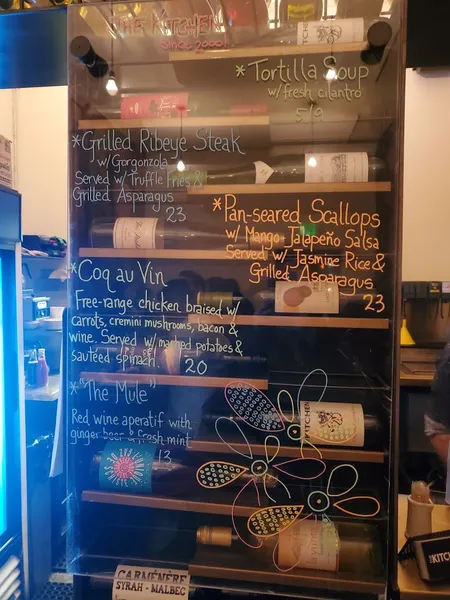 THE KITCHEN
since 2000!
*Tortilla Soup
w/fresh cilantro
5/9
*Grilled Ribeye Steak
w/Gorgonzola
Served w/Truffle Fries &
Grilled Asparagus
23
*Pan-seared Scallops
w/ Mango-Jalapeño Salsa
Served w/ Jasmine Rice &
Grilled Asparagus
23
*Coq au Vin
Free-range chicken braised w/
carrots, cremini mushrooms, bacon &
wine. Served w/ mashed potatoes &
sautéed spinach.
20
*"The Mule"
Red wine aperatif with
ginger beer & fresh mint
13
KITCHEN
CARMÉNÈRE
SYRAH - MALBEC
KITCH